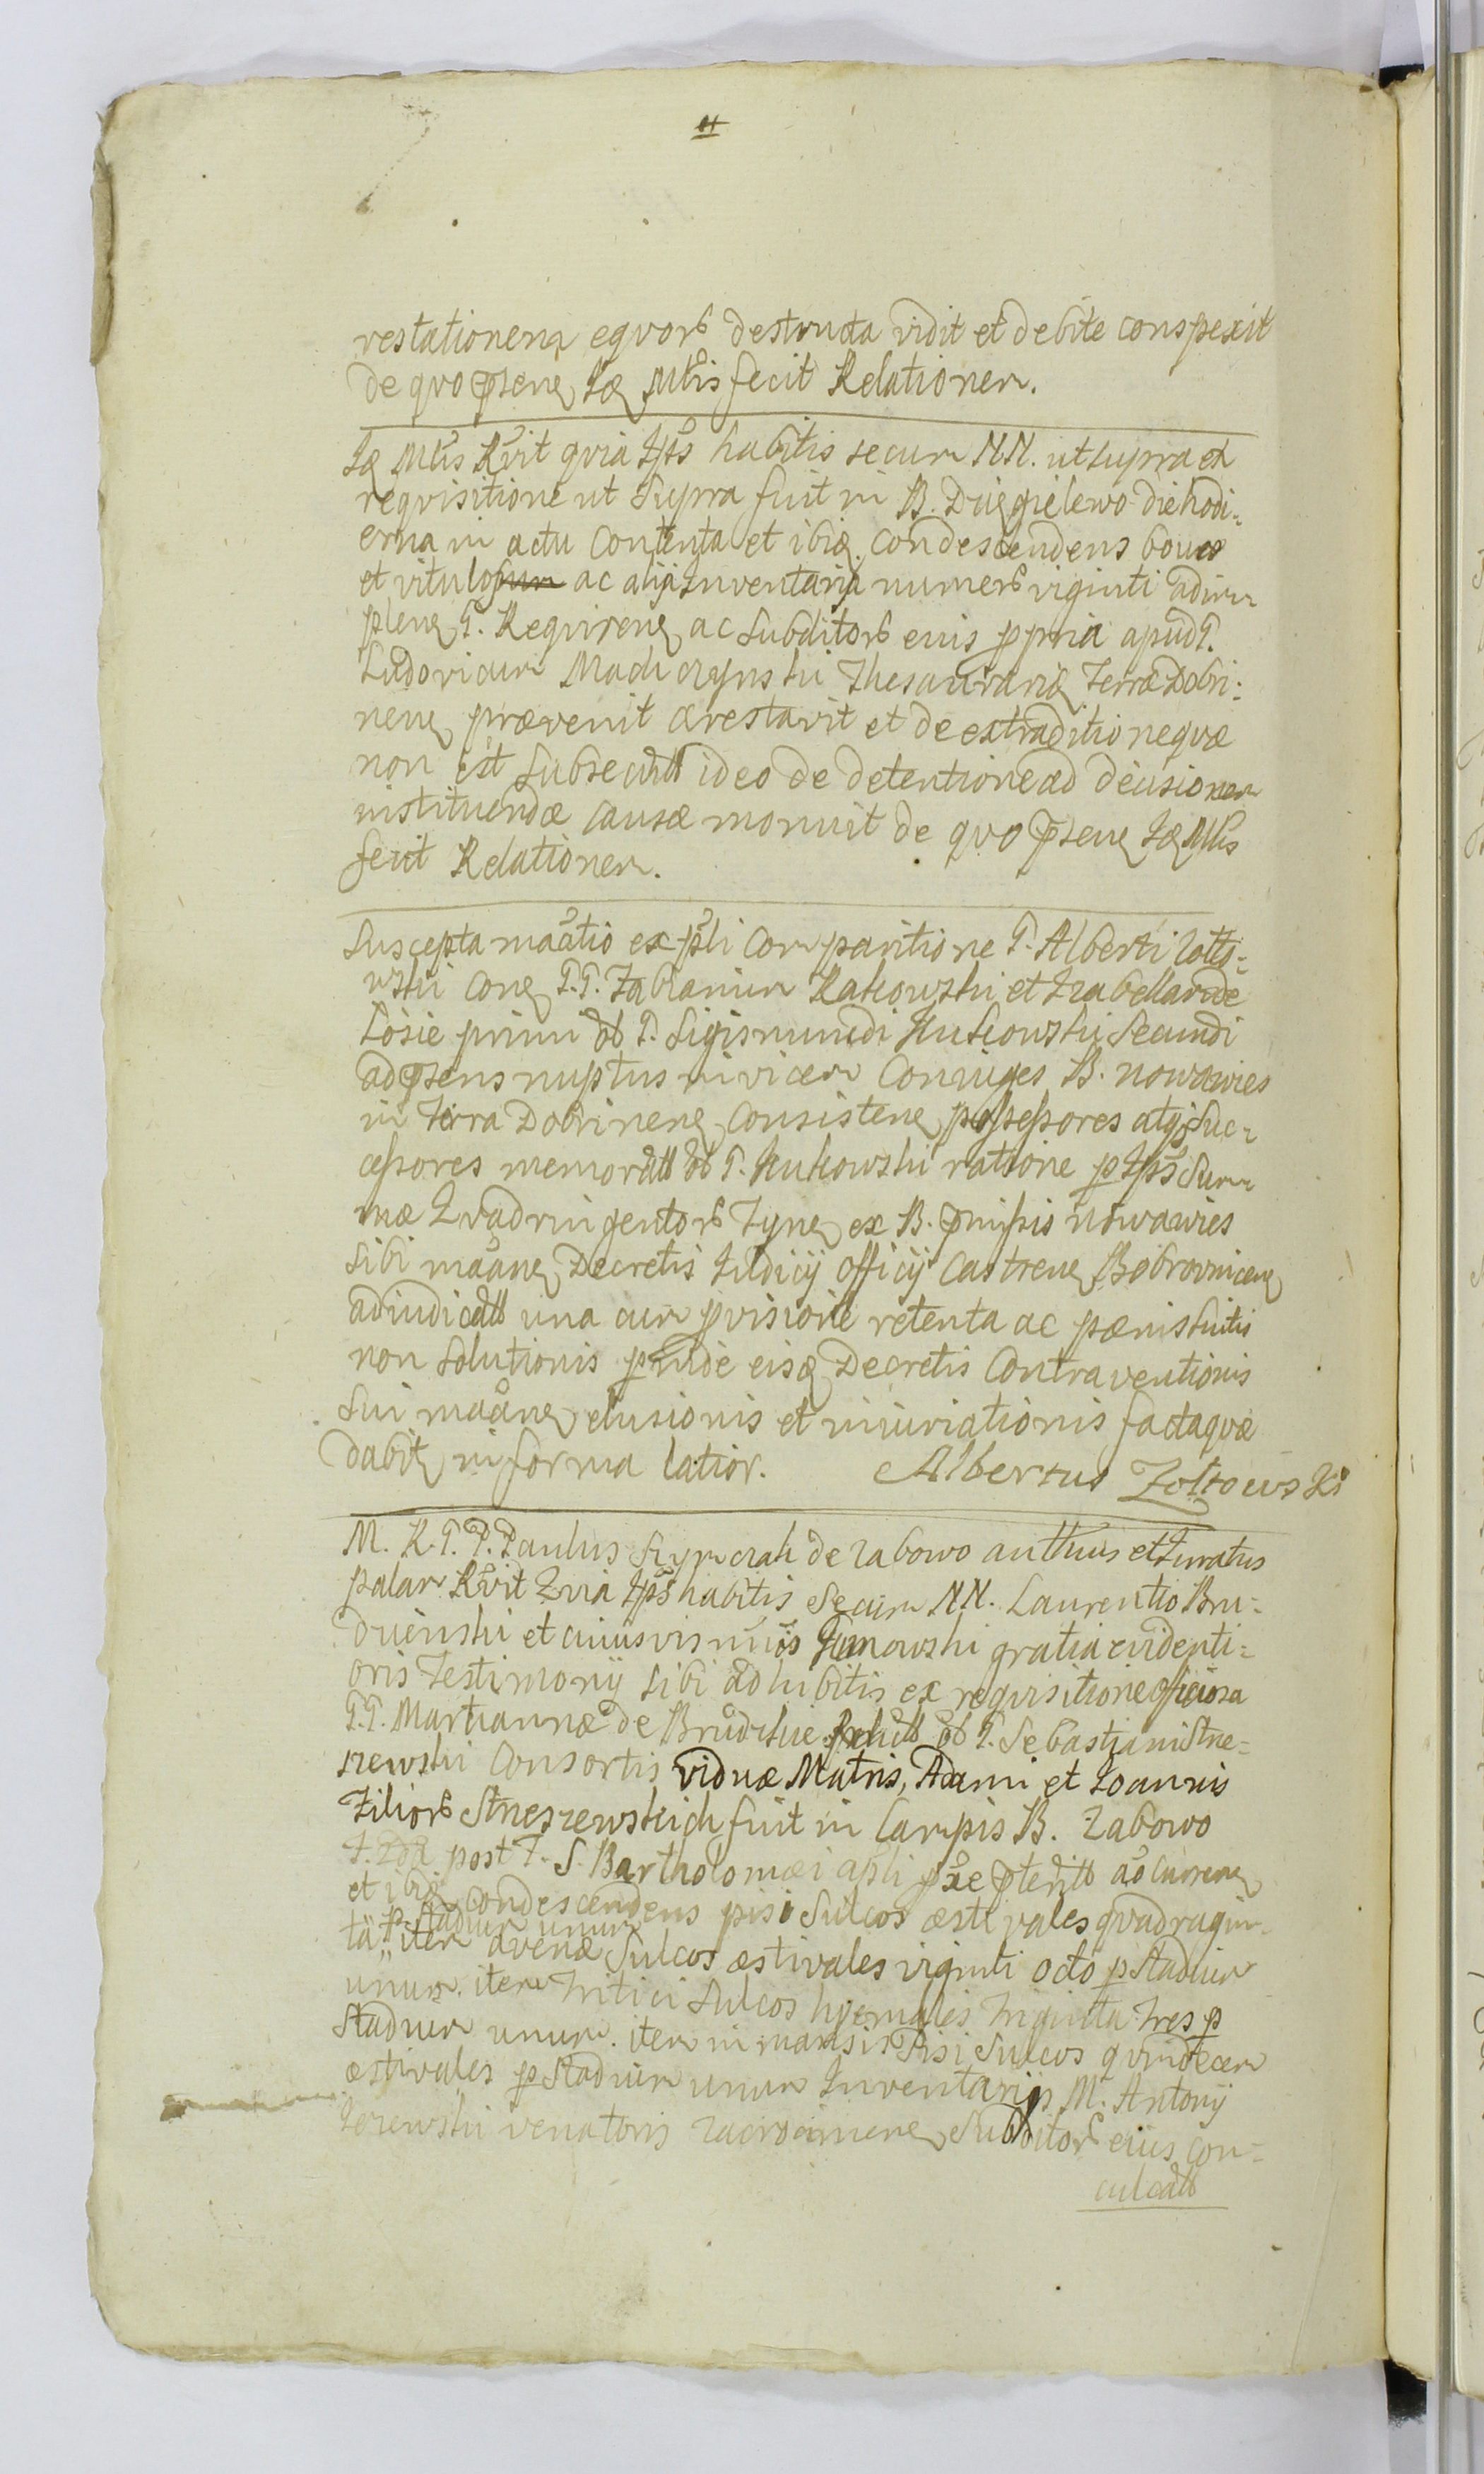 restationem eqvorb destructa vidit et debite conspexit
de qvo pnse Id Mtlis fecit Relationem.
Id Mtlis Rvit qvia Ips habitis secum NN. ut supra ex
reqvisitione ut Supra fuit in B. Dzięgielewo die hodi=
erna in actu Contenta et ibiq condescendens boves
et vitulos ac alia Inventaria numero viginti
Reqvirene ac Subditorb eius ppria apud P.
Ludovicum Thesaurariu Terræ Dobri=
nene prævenit arestavit et de extraditione qvæ
non est Subsecuta ideo de detentione ad decisionem
instituendæ Causæ monuit de qvo psene Id Mtlis
fecit Relationem.
Suscepta maatio ex psli Comparitione P. Alberti Zołto=
wski Cone P.P. Fabianum Rakowski et Izabellam de
Łosie primi ol P. Sigismundi Kukowski Secundi
ad psens nuptus invicem Coniuges B. nowawies
in Terra Dobrinene Consistene possessores atq Suc=
cessores memorati ol P. Kukowski ratione p Ips Sum=
mæ Qvadringentorb Fljne ex B. pmissis nowawies
Sibi maane Decretis Judicij Officij Castrene Bobrownicene
adiudicatt una cum pvisione retenta ac pænis
non Solutionis pinde eisq Decretis Contraventionis
Sui maane elusionis et iniuriationis factaqvæ
dabit in forma latior. Albertus Zołtowski
M. R. P. P. Paulus Szymczak de Zabowo authus et Juratus
palam Rvit Qvia Ips habitis Secum NN. Laurentio Bru=
et cuiusvis gratia evidenti=
oris Testimonij Sibi adhibitis ex reqvisitione officiosa
P.P. Martiannæ de ol P. Sebastiani Strze=
szewski Consortis viduæ Matris, Adami et Joannis
Filiorb Strzeszewskich fuit in Campis B. Zabowo
post F. S. Bartholomæi apli pxe pteritt ao Currene
et ibiq Condescendens pisi Sulcos æstivales qvadragin=
p Stadium unum
ta item avenæ Sulcos æstivales viginti octo p Stadium
unum. item tritici Sulcos hyemales triginta tres p
Stadium unum. item in mansis Pisi Sulcos qvindecem
æstivales p Stadium unum Inventarijs M. Antonij
venatoris Subditorb eius Con=
culcatt